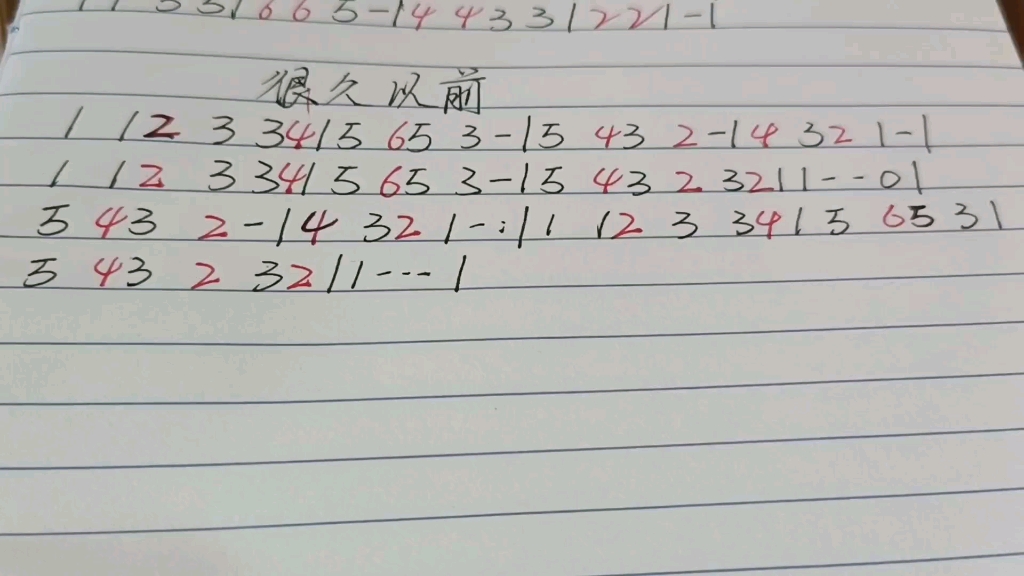 1 1 3 3 | 6 6 5 - | 4 4 3 3 | 2 2 1 - |
很久以前
1 12 3 34 | 5 65 3 - | 5 43 2 - | 4 32 1 - |
1 12 3 34 | 5 65 3 - | 5 43 2 32 | 1 - - 0 |
5 43 2 - | 4 32 1 - :| 1 12 3 34 | 5 65 3 |
5 43 2 32 | 1 - - - |